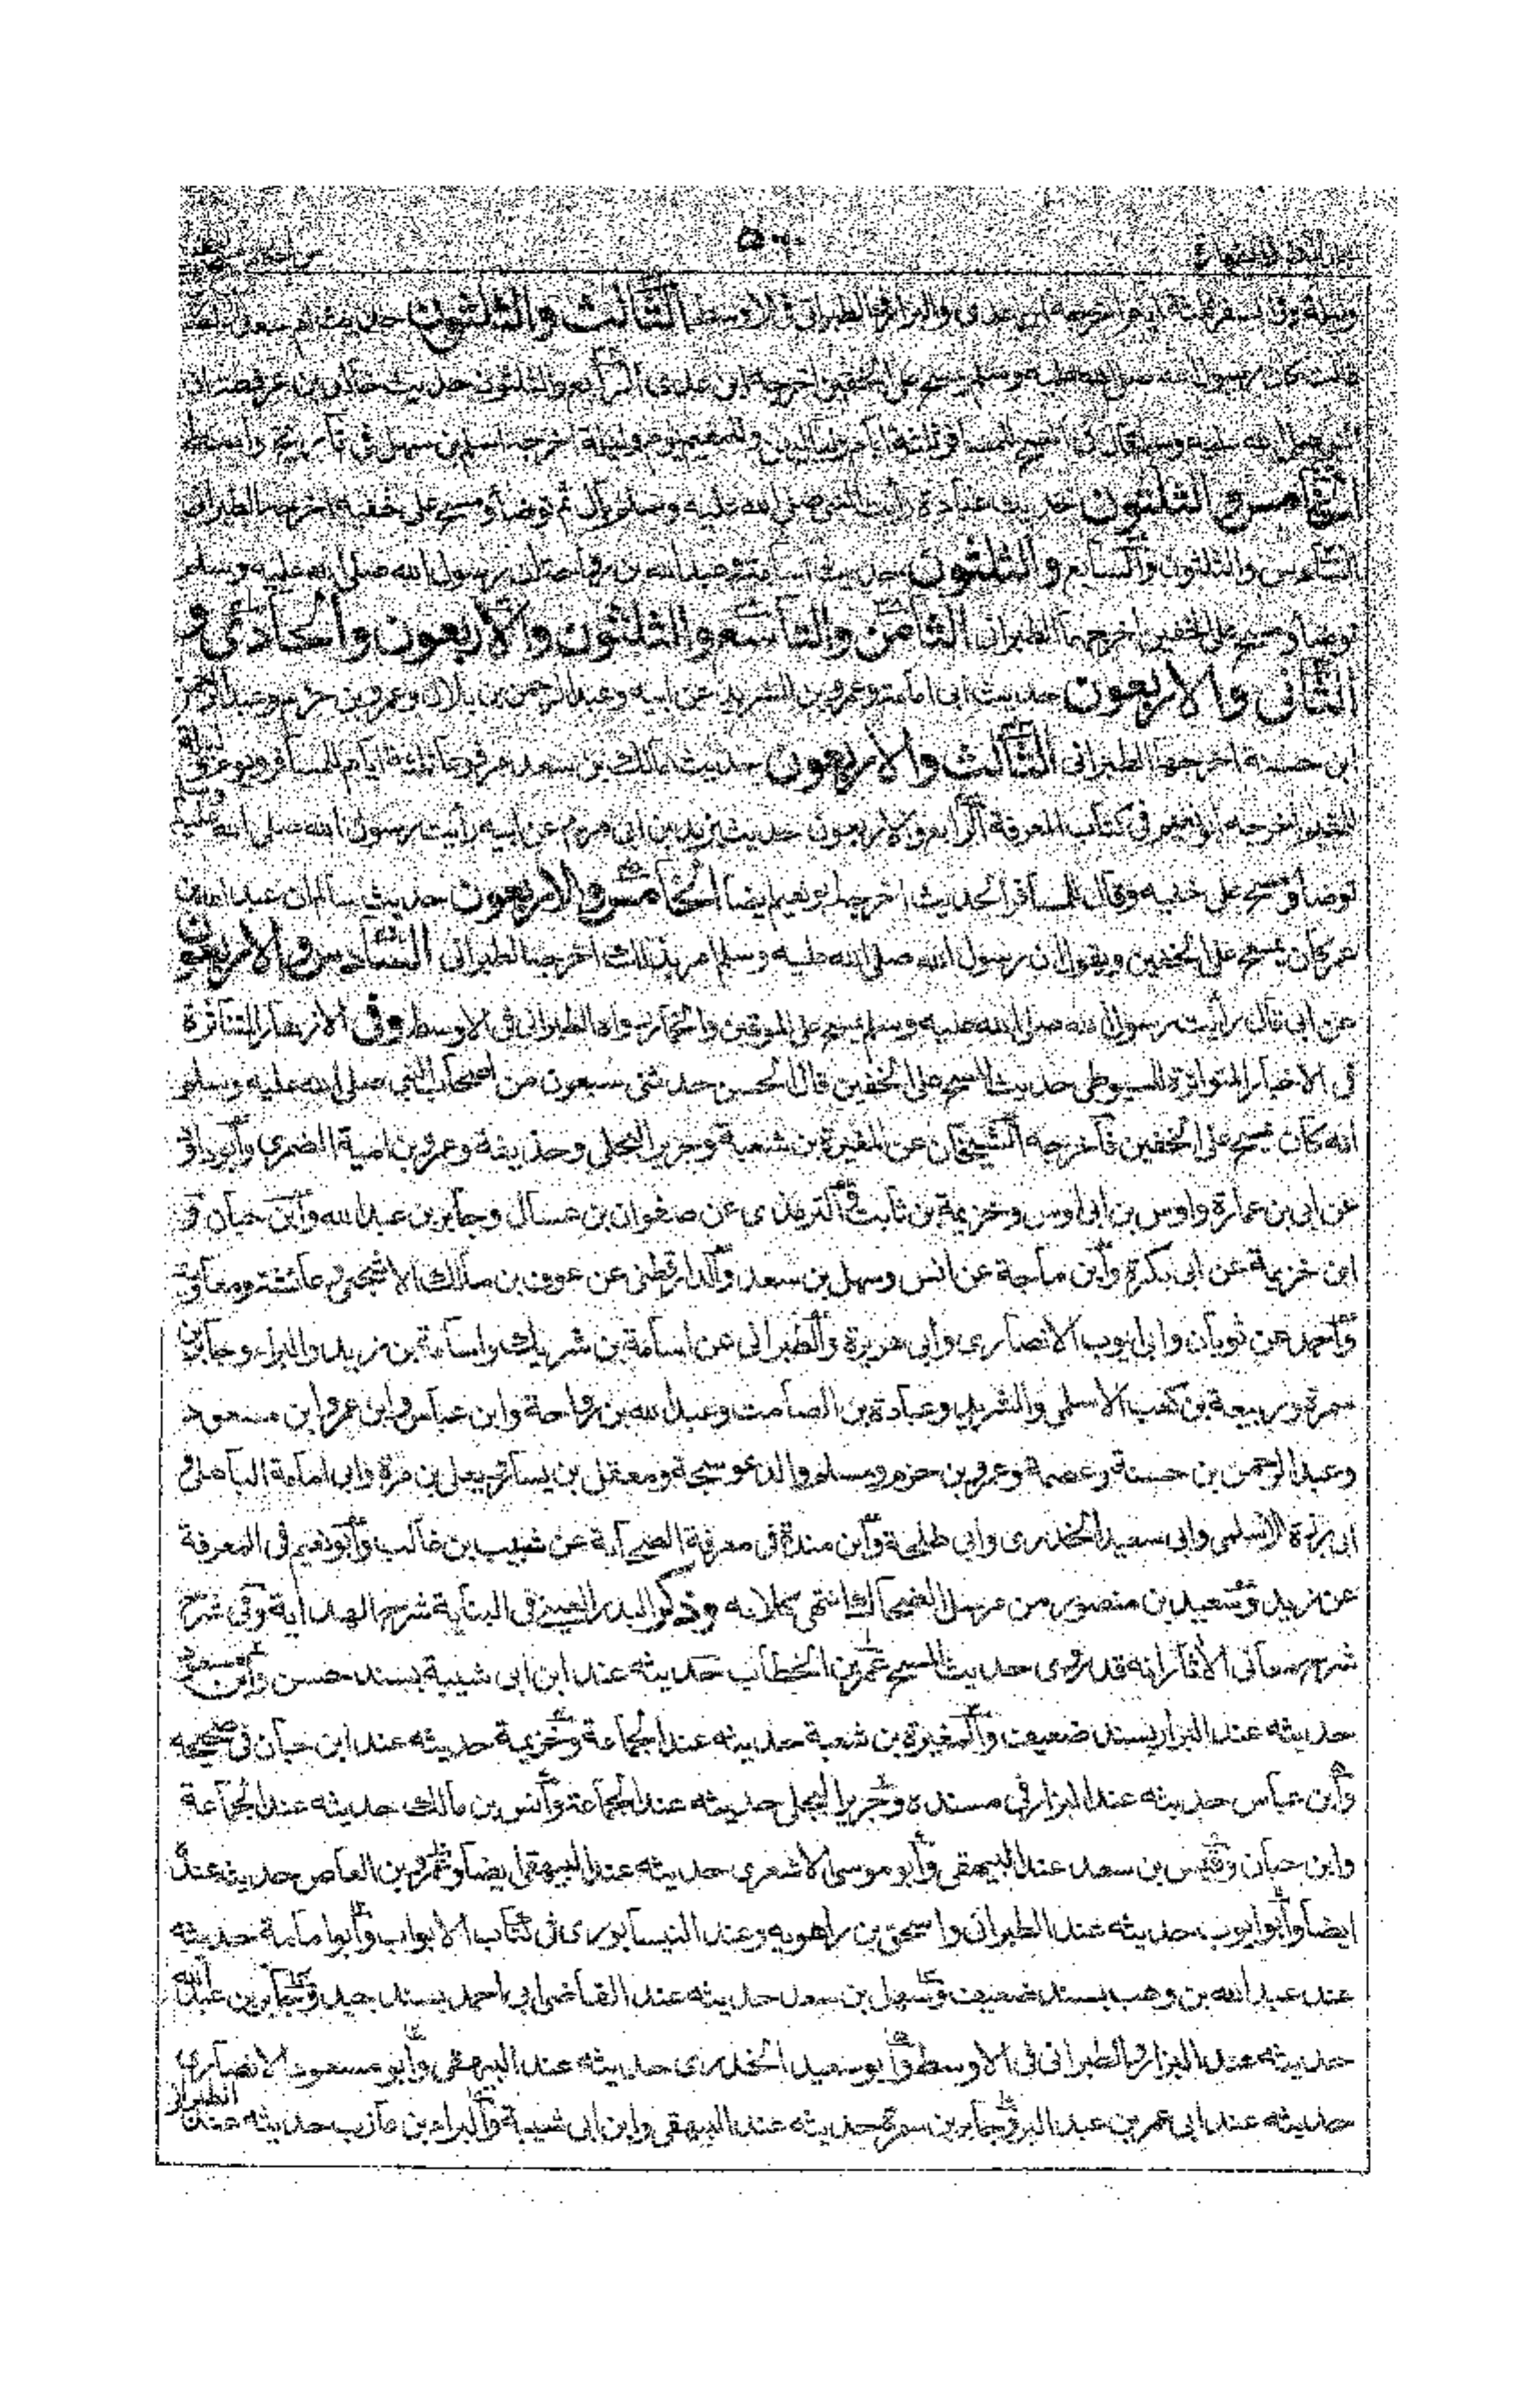 وليلة وفى السفر ثلثة ايام اخرجه ابن عدى والبزار والطبرانى فى الاوسط الثالث والثلثون حديث ام سعد
قالت كان رسول الله صلى الله عليه وسلم يمسح على الخفين اخرجه ابن عدى الرابع والثلثون حديث خالد بن عرفطة ان
النبى صلى الله عليه وسلم قال فى المسح للمسافر ثلثة ايام ولياليهن وللمقيم يوم وليلة اخرجه اسلم بن سهل فى تاريخ واسط
الخامس والثلثون حديث عبادة رأيت النبى صلى الله عليه وسلم بال ثم توضأ ومسح على خفيه اخرجه الطبرانى
السادس والثلثون والسابع والثلثون حديث اسامة وعبد الله بن رواحة ان رسول الله صلى الله عليه وسلم
توضأ ومسح على الخفين اخرجهما الطبرانى الثامن والتاسع والثلثون والاربعون والحادى و
الثانى والاربعون حديث ابى امامة وعمرو بن الشريد عن ابيه وعبد الرحمن بن بلال وعمرو بن حزم وعبد الرحمن
ابن حسنة اخرجها الطبرانى الثالث والاربعون حديث مالك بن سعد مرفوعا ثلثة ايام للمسافر ويوم وليلة
للمقيم اخرجه ابو نعيم فى كتاب المعرفة الرابع والاربعون حديث يزيد بن ابى مريم عن ابيه رأيت رسول الله صلى الله عليه وسلم
توضأ ومسح على خفيه وقال للمسافر الحديث اخرجه ابو نعيم ايضا الخامس والاربعون حديث سالم ان عبد الله بن
عمر كان يمسح على الخفين ويقول ان رسول الله صلى الله عليه وسلم امر بذلك اخرجه الطبرانى السادس والاربعون
عن ابى قال رأيت رسول الله صلى الله عليه وسلم يمسح على الموقين والخمار رواه الطبرانى فى الاوسط وفى الازهار المتناثرة
فى الاخبار المتواترة للسيوطى حديث المسح على الخفين قال الحسن حدثنى سبعون من اصحاب النبى صلى الله عليه وسلم
انه كان يمسح على الخفين فاخرجه الشيخان عن المغيرة بن شعبة وجرير البجلى وحذيفة وعمرو بن امية الضمرى وابو داؤد
عن ابى بن عمارة واوس بن ابى اوس وخزيمة بن ثابت والترمذى عن صفوان بن عسال وجابر بن عبد الله وابن حبان و
ابن خزيمة عن ابى بكرة وابن ماجة عن انس وسهل بن سعد والدارقطنى عن عوف بن مالك الاشجعى وعائشة ومعاوية
واحمد عن ثوبان وابى ايوب الانصارى وابى هريرة والطبرانى عن اسامة بن شريك واسامة بن زيد والبراء وجابر بن
سمرة وربيعة بن كعب الاسلمى والشريد وعبادة بن الصامت وعبد الله بن رواحة وابن عباس وابن عمر وابن مسعود
وعبد الرحمن بن حسنة وعصمة وعمرو بن حزم ومسلم والد عوسجة ومعقل بن يسار ويعلى بن مرة وابى امامة الباهلى و
ابى برزة الاسلمى وابى سعيد الخدرى وابى طلحة وابن مندة فى معرفة الصحابة عن شبيب بن غالب وابو نعيم فى المعرفة
عن زيد وسعيد بن منصور من مرسل الضحاك انتهى كلامه وذكر البدر العينى فى البناية شرح الهداية وفى شرح
شرح معانى الأثار انه قد روى حديث المسح عمر بن الخطاب حديثه عند ابن ابى شيبة بسند حسن وابن مسعود
حديثه عند البزار بسند ضعيف والمغيرة بن شعبة حديثه عند الجماعة وخزيمة حديثه عند ابن حبان فى صحيحه
وابن عباس حديثه عند البزار فى مسنده وجرير البجلى حديثه عند الجماعة وانس بن مالك حديثه عند الجماعة
وابن حبان وقيس بن سعد عند البيهقى وابو موسى الاشعرى حديثه عند البيهقى ايضا وعمرو بن العاص حديثه عنده
ايضا وابو ايوب حديثه عند الطبرانى واسحق بن راهويه وعند النيسابورى فى كتاب الابواب وابو امامة حديثه
عند عبد الله بن وهب بسند ضعيف وسهل بن سعد حديثه عند القاضى ابى احمد بسند جيد وجابر بن عبد الله
حديثه عند البزار والطبرانى فى الاوسط وابو سعيد الخدرى حديثه عند البيهقى وابو مسعود الانصارى
حديثه عند ابى عمر بن عبد البر وجابر بن سمرة حديثه عند البيهقى وابن ابى شيبة والبراء بن عازب حديثه عند الطبرانى